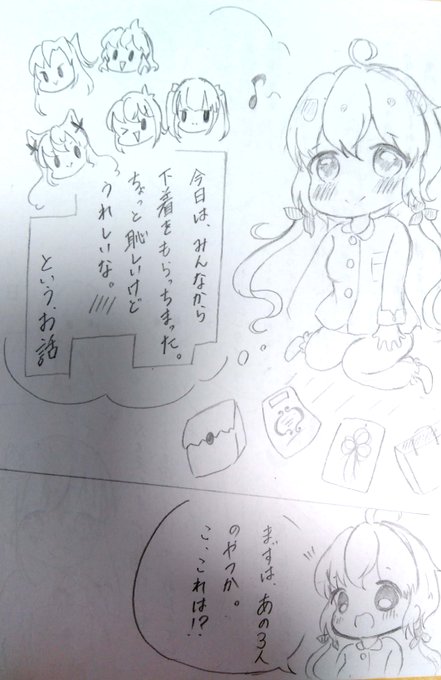 今日は、みんなから
下着をもらっちまった。
ちょっと恥しいけど
うれしいな。
という、お話
まずは あの3人
のやつか。
こ、これは!?